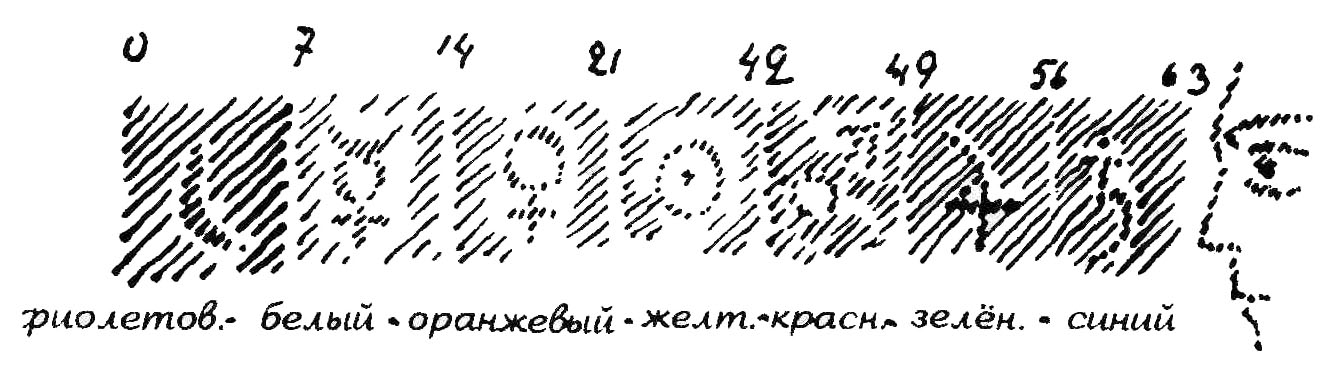 0 7 14 21 42 49 56 63
фиолетов.- белый - оранжевый - желт.-красн.- зелён. - синий